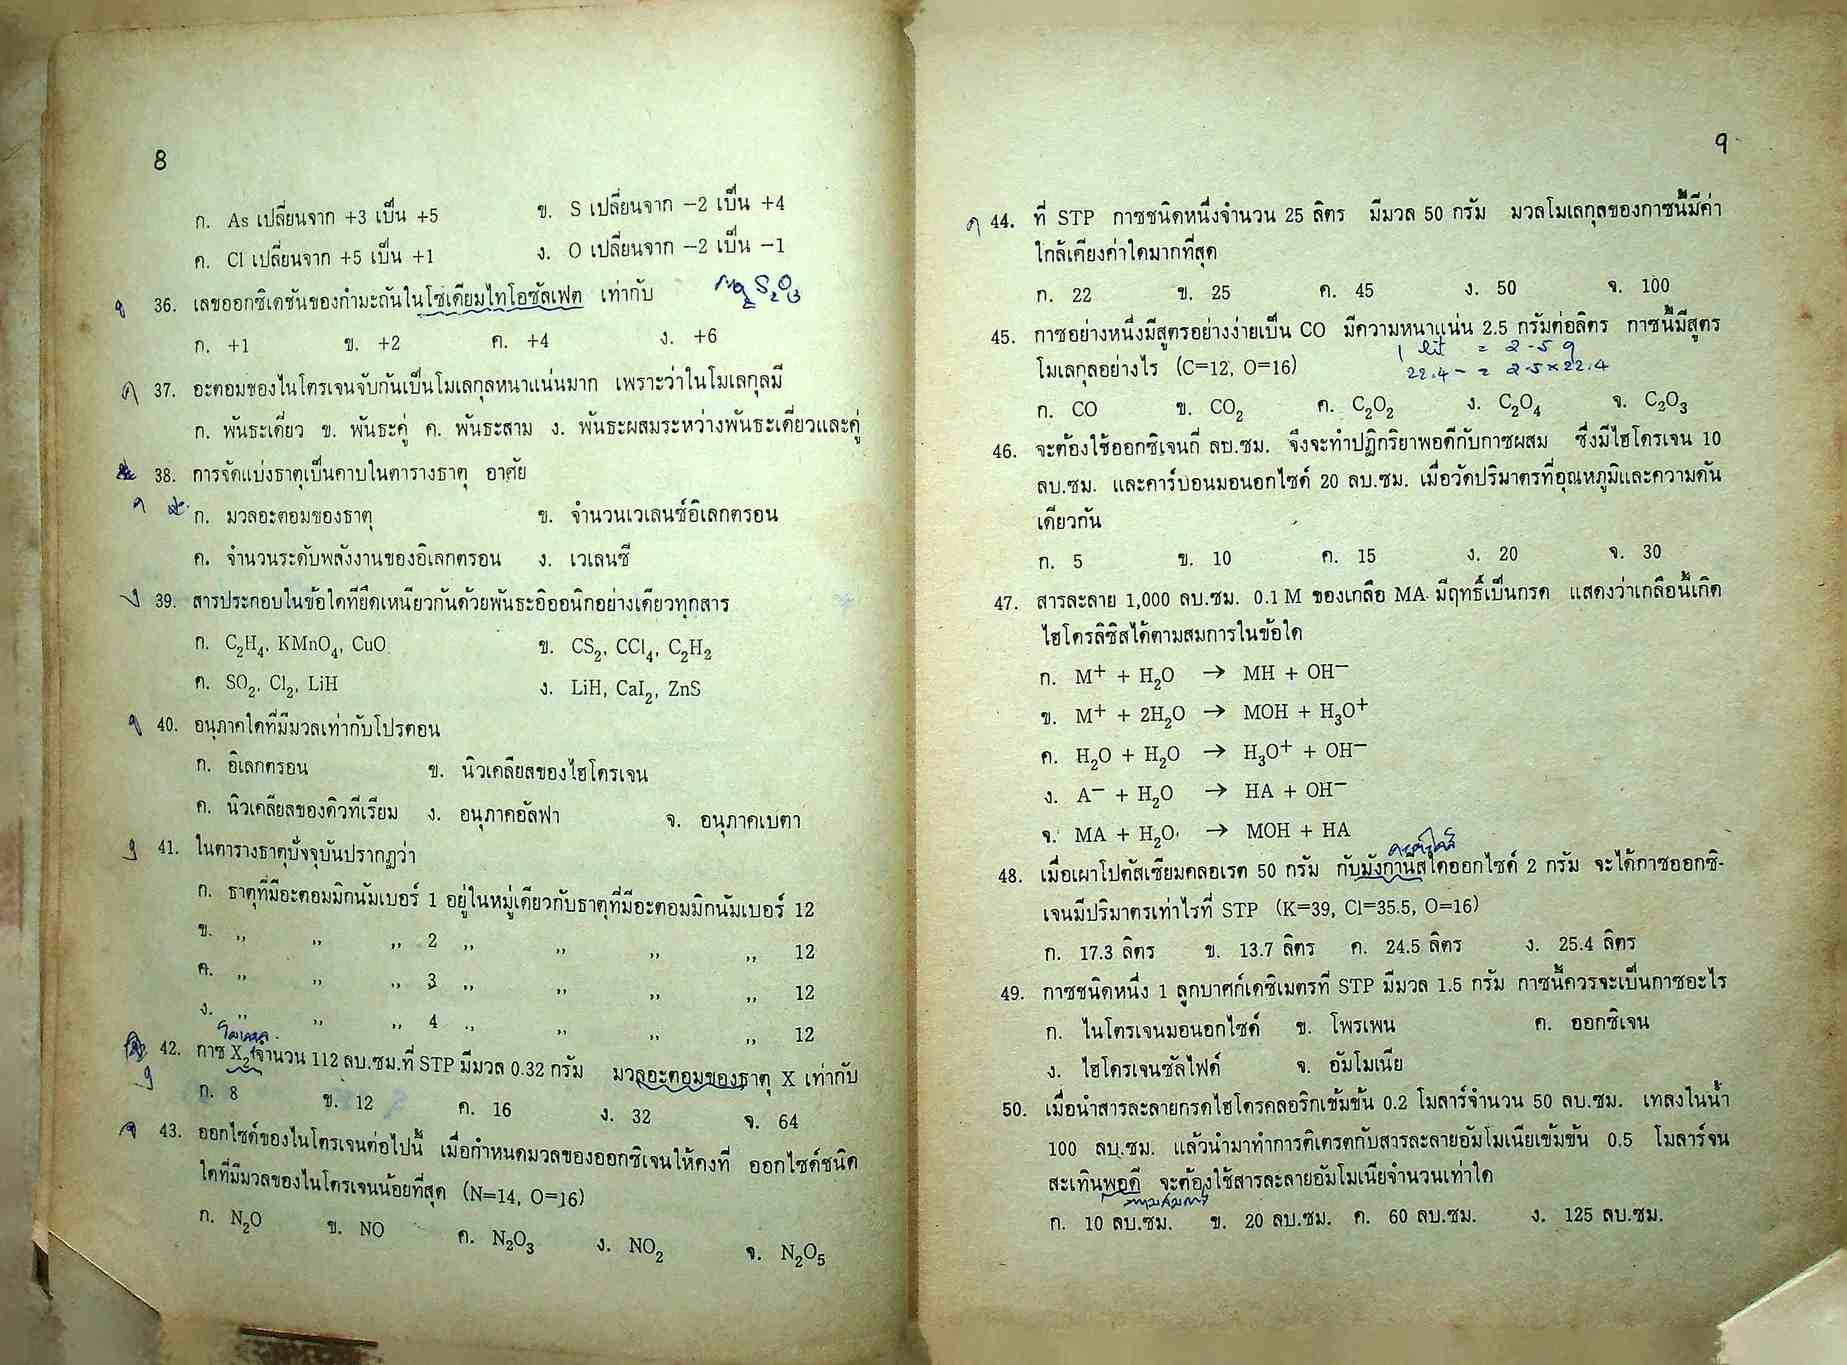 8
ก. As เปลี่ยนจาก +3 เป็น +5 ข. S เปลี่ยนจาก −2 เป็น +4
ค. Cl เปลี่ยนจาก +5 เป็น +1 ง. O เปลี่ยนจาก −2 เป็น −1
36. เลขออกซิเดชันของกำมะถันในโซเดียมไทโอซัลเฟต เท่ากับ
ก. +1 ข. +2 ค. +4 ง. +6
37. อะตอมของไนโตรเจนจับกันเป็นโมเลกุลหนาแน่นมาก เพราะว่าในโมเลกุลมี
ก. พันธะเดี่ยว ข. พันธะคู่ ค. พันธะสาม ง. พันธะผสมระหว่างพันธะเดี่ยวและคู่
38. การจัดแบ่งธาตุเป็นคาบในตารางธาตุ อาศัย
ก. มวลอะตอมของธาตุ ข. จำนวนเวเลนซ์อิเลกตรอน
ค. จำนวนระดับพลังงานของอิเลกตรอน ง. เวเลนซี
39. สารประกอบในข้อใดที่ยึดเหนียวกันด้วยพันธะอิออนิกอย่างเดียวทุกสาร
ก. C₂H₄, KMnO₄, CuO ข. CS₂, CCl₄, C₂H₂
ค. SO₂, Cl₂, LiH ง. LiH, CaI₂, ZnS
40. อนุภาคใดที่มีมวลเท่ากับโปรตอน
ก. อิเลกตรอน ข. นิวเคลียสของไฮโดรเจน
ค. นิวเคลียสของดิวทีเรียม ง. อนุภาคอัลฟา จ. อนุภาคเบตา
41. ในตารางธาตุปัจจุบันปรากฏว่า
ก. ธาตุที่มีอะตอมมิกนัมเบอร์ 1 อยู่ในหมู่เดียวกับธาตุที่มีอะตอมมิกนัมเบอร์ 12
ข. ,, ,, ,, 2 ,, ,, ,, ,, 12
ค. ,, ,, ,, 3 ,, ,, ,, ,, 12
ง. ,, ,, ,, 4 ,, ,, ,, ,, 12
42. กาซ X₂ จำนวน 112 ลบ.ซม.ที่ STP มีมวล 0.32 กรัม มวลอะตอมของธาตุ X เท่ากับ
ก. 8 ข. 12 ค. 16 ง. 32 จ. 64
43. ออกไซด์ของไนโตรเจนต่อไปนี้ เมื่อกำหนดมวลของออกซิเจนให้คงที่ ออกไซด์ชนิด
ใดที่มีมวลของไนโตรเจนน้อยที่สุด (N=14, O=16)
ก. N₂O ข. NO ค. N₂O₃ ง. NO₂ จ. N₂O₅
9
ค 44. ที่ STP กาซชนิดหนึ่งจำนวน 25 ลิตร มีมวล 50 กรัม มวลโมเลกุลของกาซนี้มีค่า
ใกล้เคียงค่าใดมากที่สุด
ก. 22 ข. 25 ค. 45 ง. 50 จ. 100
45. กาซอย่างหนึ่งมีสูตรอย่างง่ายเป็น CO มีความหนาแน่น 2.5 กรัมต่อลิตร กาซนี้มีสูตร
1 lit = 2.5 g
โมเลกุลอย่างไร (C=12, O=16) 22.4 - = 2.5×22.4
ก. CO ข. CO₂ ค. C₂O₂ ง. C₂O₄ จ. C₂O₃
46. จะต้องใช้ออกซิเจนกี่ ลบ.ซม. จึงจะทำปฏิกริยาพอดีกับกาซผสม ซึ่งมีไฮโดรเจน 10
ลบ.ซม. และคาร์บอนมอนอกไซด์ 20 ลบ.ซม. เมื่อวัดปริมาตรที่อุณหภูมิและความดัน
เดียวกัน
ก. 5 ข. 10 ค. 15 ง. 20 จ. 30
47. สารละลาย 1,000 ลบ.ซม. 0.1 M ของเกลือ MA มีฤทธิ์เป็นกรด แสดงว่าเกลือนี้เกิด
ไฮโดรลิซิสได้ตามสมการในข้อใด
ก. M⁺ + H₂O → MH + OH⁻
ข. M⁺ + 2H₂O → MOH + H₃O⁺
ค. H₂O + H₂O → H₃O⁺ + OH⁻
ง. A⁻ + H₂O → HA + OH⁻
จ. MA + H₂O → MOH + HA
48. เมื่อเผาโปตัสเซียมคลอเรต 50 กรัม กับมังกานีสไดออกไซด์ 2 กรัม จะได้กาซออกซิ-
เจนมีปริมาตรเท่าไรที่ STP (K=39, Cl=35.5, O=16)
ก. 17.3 ลิตร ข. 13.7 ลิตร ค. 24.5 ลิตร ง. 25.4 ลิตร
49. กาซชนิดหนึ่ง 1 ลูกบาศก์เดซิเมตรที่ STP มีมวล 1.5 กรัม กาซนี้ควรจะเป็นกาซอะไร
ก. ไนโตรเจนมอนอกไซด์ ข. โพรเพน ค. ออกซิเจน
ง. ไฮโดรเจนซัลไฟด์ จ. อัมโมเนีย
50. เมื่อนำสารละลายกรดไฮโดรคลอริกเข้มข้น 0.2 โมลาร์จำนวน 50 ลบ.ซม. เทลงในน้ำ
100 ลบ.ซม. แล้วนำมาทำการติเตรตกับสารละลายอัมโมเนียเข้มข้น 0.5 โมลาร์จน
สะเทินพอดี จะต้องใช้สารละลายอัมโมเนียจำนวนเท่าใด
ก. 10 ลบ.ซม. ข. 20 ลบ.ซม. ค. 60 ลบ.ซม. ง. 125 ลบ.ซม.